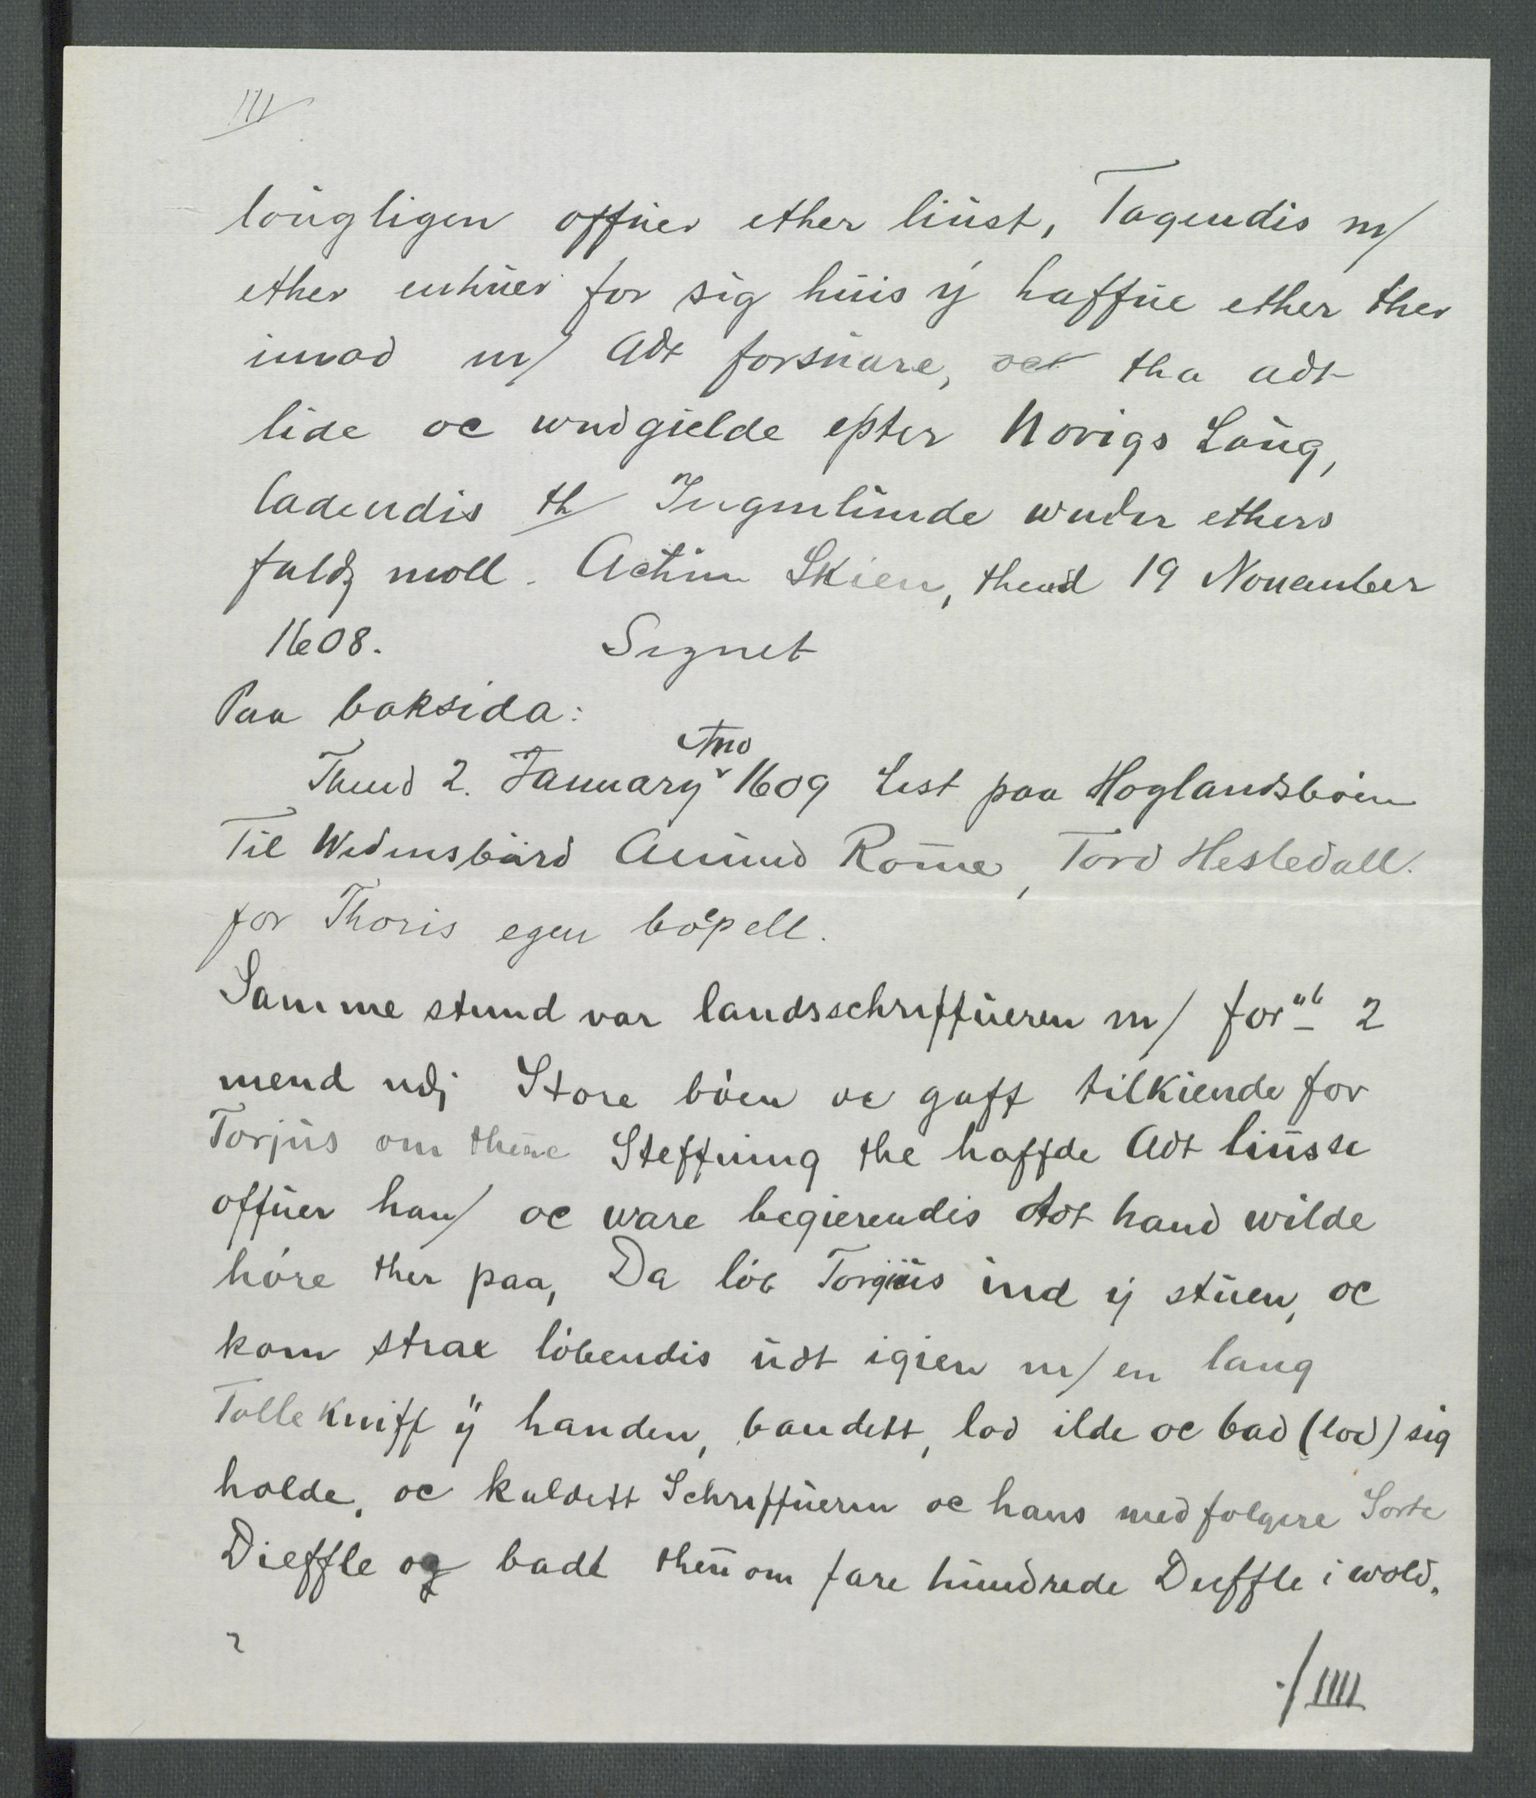 III
loügligen offüer ether liüst, Tagendis m/
ether enhüer for sig hüis ÿ haffüe ether ther
imod m/ Adt forsüare, oct tha adt
lide oc wndgielde epter Norigs Loüg,
ladendis th/ Ingenlünde wnder ethers
faldz moll. Actüm Skien, thend 19 Nouember
1608. Signet
Paa baksida:
Thend 2. January Ano 1609 Lest paa Hoglandsböen
Til Widnsbürd Amünd Roüe, Tord Hesledall.
for Thoris egen böpell.
Samme stund var landsschriffüeren m/ for"b 2
mend udj Store böen oc gaff tilkiende for
Torjüs om thene Steffning the haffde Adt liüsse
offüer han/ oc ware begierendis Adt hand wilde
höre ther paa, Da löb Torgiüs ind ÿ stüen, oc
kom strax löbendis üdt igien m/ en lang
Tolle kniff ÿ handen, bandett, lod ilde oc bad (lod) sig
holde, oc kaldett Schriffüeren oc hans medfolgere Sorte
Dieffle og badt theüom fare hündrede Dieffle i wold.
./IIII